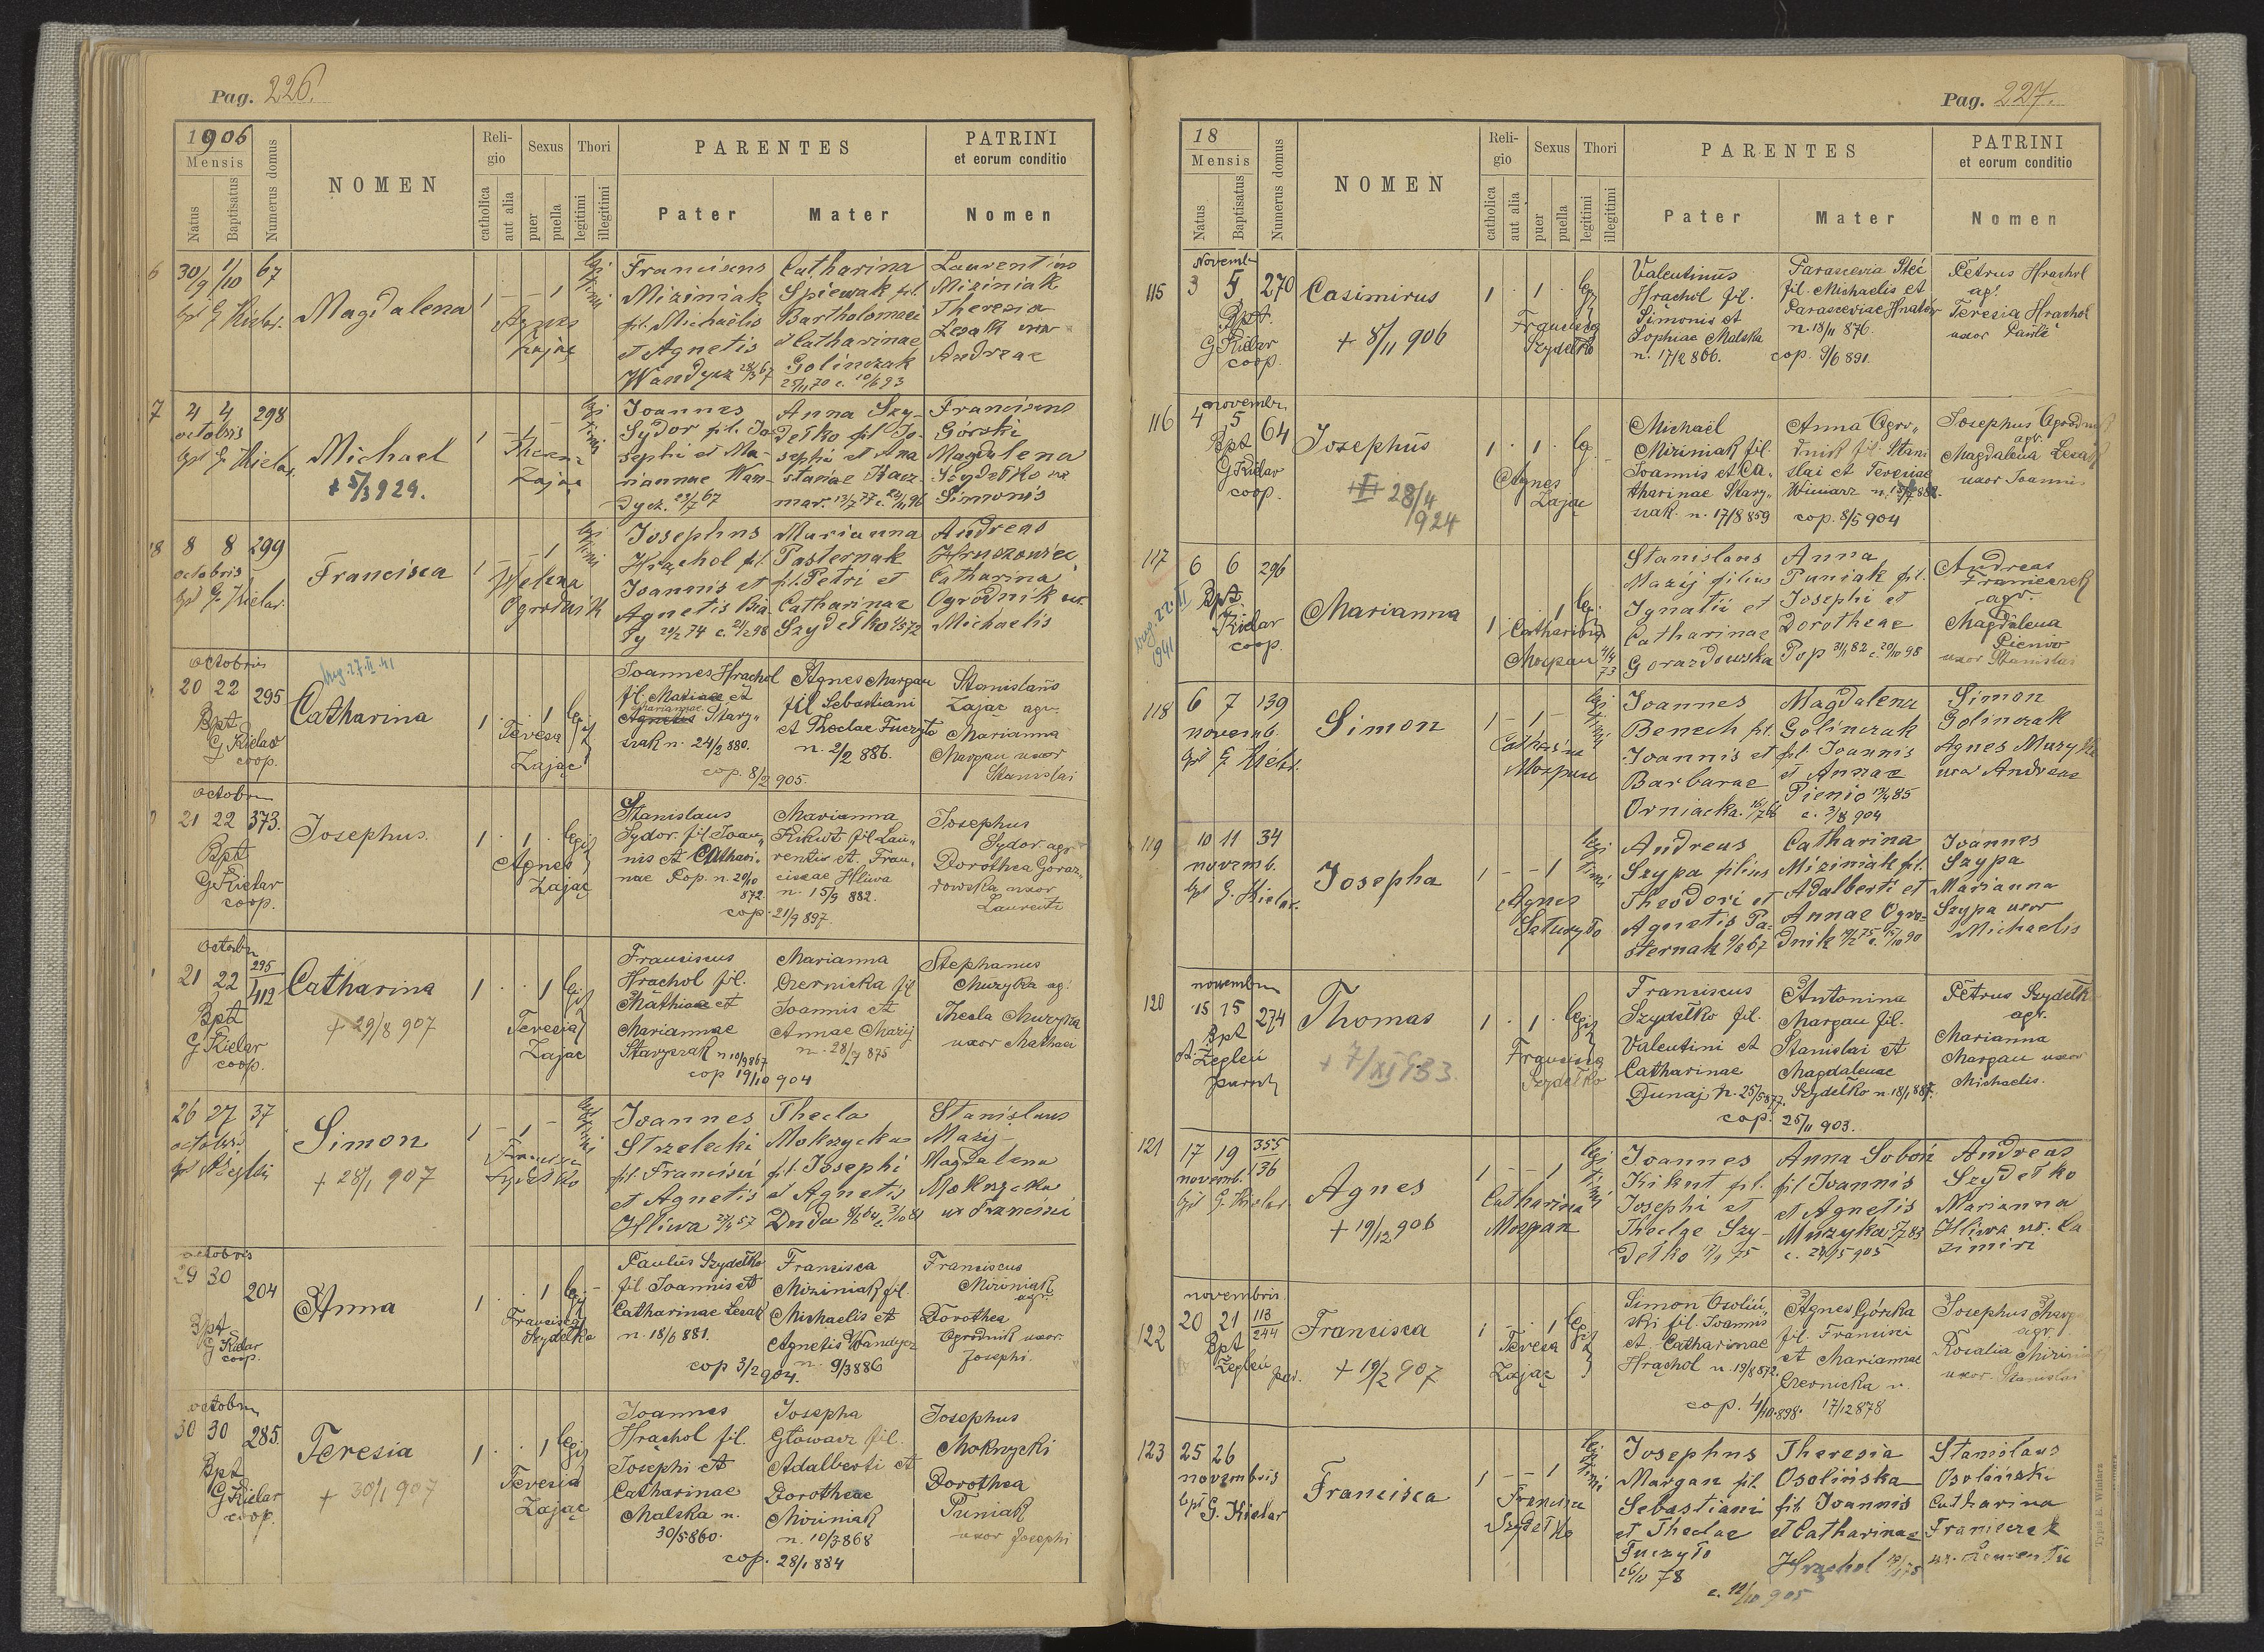 Pag. 226.
1906
Mensis
Natus
Baptisatus
Numerus domus
NOMEN
Religio
catholica
aut alia
Sexus
puer
puella
Thori
legitimi
illegitimi
PARENTES
Pater
Mater
PATRINI
et eorum conditio
Nomen
6
30/9 1/10 67
Bpt G Kielar.
Magdalena
1 - - 1
legitimi
Agnes
Zając
Franciscus
Miziniak
fil. Michaëlis
et Agnetis
Wandycz 28/3 67
Catharina
Śpiewak fil.
Bartholomaei
et Catharinae
Golinczak
25/11 70 c. 10/6 93
Laurentius
Miziniak
Theresia
Lesak uxor
Andreae
7
4 4 298
octobris
Bpt G. Kielar
Michael
+ 5/3 929.
1 - 1 -
legitimi
Zając
Joannes
Sydor fil. Jo-
sephi et Ma-
riannae Wan-
dycz.
Anna Szy-
dełko fil Jo-
sephi et Ana
staniae Kacz-
mar.
Franciscus
Górski
Magdalena
Szydełko ux
Simonis
8 8 299
octobris
Bpt G. Kielar.
Francisca
1 - - 1
legitimi
Helena
Ogrodnik
Josephus
Hrachol fil.
Joannis et
Agnetis Bia
ły 20/2 74 c. 21/2 98
Marianna
Pasternak
fil. Petri et
Catharinae
Szydełko
Andreas
Hruszowiec
Catharina
Ogrodnik ux.
Michaelis
octobris
20 22 295
Bpt
G Kielar
coop.
27.II.41
Catharina
1 . . 1 legit
Teresa
Zając
Joannes Hrachol
fil. Matiae et
Mariannae
Agnetis Stary„
szak n. 24/2 880.
Agnes Margau
fil Sebastiani
et Theclae Fuczyło
n. 2/2 886.
cop. 8/2 905.
Stanislaus
Zając agr.
Marianna
Margau uxor
Stanislai
octobr
21 22 373.
Bpt
G Kielar
coop.
Josephus.
1 . 1 . legit
Agnes
Zając
Stanislaus
Sydor. fil Joan„
nis et Cathari„
nae Pop. n. 20/10
872.
Marianna
Kikut fil Lau„
rentii et Fran„
ciscae Hliwa
n. 15/9 882.
cop. 21/9 897.
Josephus
Sydor agr
Dorothea Goraz„
rowska uxor
Laurenti
octobr
21 22 295/412
Bpt
G Kielar
coop.
Catharina
+ 29/8 907
1 . . 1 legit
Teresia
Zając
Franciscus
Hrachol fil.
Mathiae et
Mariannae
Staryszak n 10/9 867
Marianna
Czernicka fil
Joannis et
Annae Mazij
n. 28/7 875
cop 19/10 904
Stephanus
Muzyka ag.
Thecla Muzyka
uxor Mathaei
26 27 37
octobris
Simon
+ 28/1 907
1 - 1 -
legitimi
Joannes
Strzelecki
fil. Francisci
et Agnetis
Hliwa
Thecla
Mokrzycka
fil. Josephi
et Agnetis
Duda
Stanislaus
Mazij-
Magdalena
Mokrzycka
ux Francisci
octobris
29 30
204
Bpt
G Kielar
coop.
Anna
1 . . 1 leg
Francisca
Szydełko
Paulus Szydełko
fil Joannis et
Catharinae Lesak
n. 18/6 881.
Francisca
Miziniak fil.
Michaelis et
Agnetis Wandycz
n. 9/3 886
cop 3/2 904.
Franciscus
Miziniak
agr.
Dorothea
Ogrodnik uxor
Josephi.
octobr
30 30 285.
Bpt
G Kielar
coop.
Teresia
+ 30/1 907
1 . . 1 legit
Teresia
Zając
Joannes
Hrachol fil.
Josephi et
Catharinae
Malska n.
30/5 860.
Josepha
Głowacz fil.
Adalberti et
Dorotheae
Miziniak
n. 10/3 868
cop. 28/1 884
Josephus
Mokrzycki
Dorothea
Puniak
uxor Josephi
Pag. 227.
18
Mensis
Natus
Baptisatus
Numerus domus
NOMEN
Religio
catholica
aut alia
Sexus
puer
puella
Thori
legitimi
illegitimi
PARENTES
Pater
Mater
PATRINI
et eorum conditio
Nomen
115
Novembr
3 5 270
Bpt.
G Kielar
coop.
Casimirus
+ 8/11 906
1 . 1 . leg
Francisca
Szydełko
Valentinus
Hrachol fil.
Simonis et
Sophiae Malska
n. 17/2 866.
Parascevia Steć
fil. Michaelis et
Parasceviae Hnatów
n. 18/11 876.
cop. 9/6 891.
Petrus Hrachol
agr.
Teresia Hrachol
uxor Pauli
116
novembr.
4 5 64
Bpt
G Kielar
coop.
Josephus
+ 28/4 924
1 . 1 . leg
Agnes
Zając
Michaël
Miziniak fil.
Joannis et Ca„
tharinae Stary„
szak. n. 17/8 859
Anna Ogro„
dnik fil. Stani
slai et Teresiae
Winiarz
cop. 8/5 904
Josephus Ogrodnik
agr.
Magdalena Lesak
uxor Joannis
117
6 6 296
Bpt
Kielar
coop.
22.II
1941
Marianna
1 . . 1 leg.
Catharina
Morgan
Stanislaus
Mazij filius
Ignatii et
Catharinae
Gorazdowska
Anna
Puniak fil.
Josephi et
Dorotheae
Pop 31/1 82 c. 20/10 98
Andreas
Franieczek
agr.
Magdalena
Pienio
uxor Stanislai
118
6 7 139
novemb.
Bpt G. Kielar.
Simon
1 - 1 -
legitimi
Catharina
Morgan
Joannes
Benech fil.
Joannis et
Barbarae
Orniacka.
Magdalena
Golinczak
fil. Joannis
et Annae
Pienio
c. 3/8 904
Simon
Golinczak
Agnes Muzyka
uxor Andreae
119
10 11 34
novemb.
Bpt G. Kielar.
Josepha
1 - - 1
legitimi
Agnes
Saturyło
Andreas
Szypa filius
Theodori et
Agnetis Pa-
sternak
Catharina
Miziniak fil.
Adalberti et
Annae Ogro-
dnik
Joannes
Szypa
Marianna
Szypa uxor
Michaelis
120
novembr
15 15 274
Bpt
Żegleń
paroch
Thomas
+ 7/XI 933.
1 . 1 . legit
Francisca
Szydełko
Franciscus
Szydełko fil.
Valentini et
Catharinae
Dunaj n. 25/5 877.
Antonina
Margau fil.
Stanislai et
Magdalenae
Szydełko n. 18/1 887.
cop. 25/11 903.
Petrus Szydełko
agr.
Marianna
Margau uxor
Michaelis.
121
17 19 355/136
novemb.
Bpt G. Kielar.
Agnes
+ 19/12 906
1 - - 1
legitimi
Catharina
Morgan
Joannes
Kikut fil.
Josephi et
Theclae Szy-
dełko
Anna Soboń
fil Joannis
et Agnetis
Muzyka
Andreas
Szydełko
Marianna
Hliwa ux. Ca
zimiri
122
novembris.
20 21 113/244
Bpt
Żegleń
par.
Francisca
+ 19/2 907
1 - . 1 leg
Teresa
Zając
Simon Osoliń„
ski fil. Joannis
et Catharinae
Hrachol n. 19/8 872.
Agnes Górska
fil. Francisci
et Mariannae
Czernicka n.
17/12 878
cop. 4/10 898.
Josephus
agr.
Rosalia
uxor Stanislai
123
25 26
novembris
bpt G. Kielar
Francisca
1 - - 1
legitimi
Francisca
Szydełko
Josephus
Margan fil.
Sebastiani
et Theclae
Fuczyło
26/11 78
Theresia
Osolińska
fil. Joannis
et Catharinae
Hrachol
c. 12/10 905
Stanislaus
Osoliński
Catharina
Franieczek
ux. Laurentii